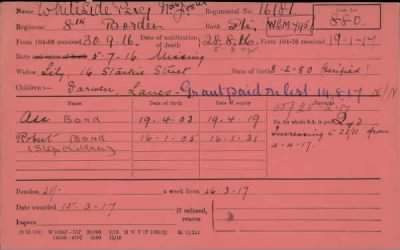 Whiteside Percy Regimental No. 16181 Cas. No. 880.
Regiment 8th Border Pte. WSM 4451
Form 104-88 received 30.9.16. Date of notification of death 28.8.16. Form 104-76 received 19-1-17
Date and cause of death 5-7-16 Missing
Widow Lily, 16 Starkie Street 8-2-80 (verified)
Children:- Darwen, Lancs. Grant paid on list 14.8.17
NAME Date of birth Date of expiry
Asa Bond 19.4.03 19.4.19 2
Robert Bond 16.1.05 16-1-31 Increasing to 22/11 from
(Stepchildren) 4-4-17.
Pension 21/- a week from 26-3-17
Date awarded 15-3-17 If refused,
reason
Impers